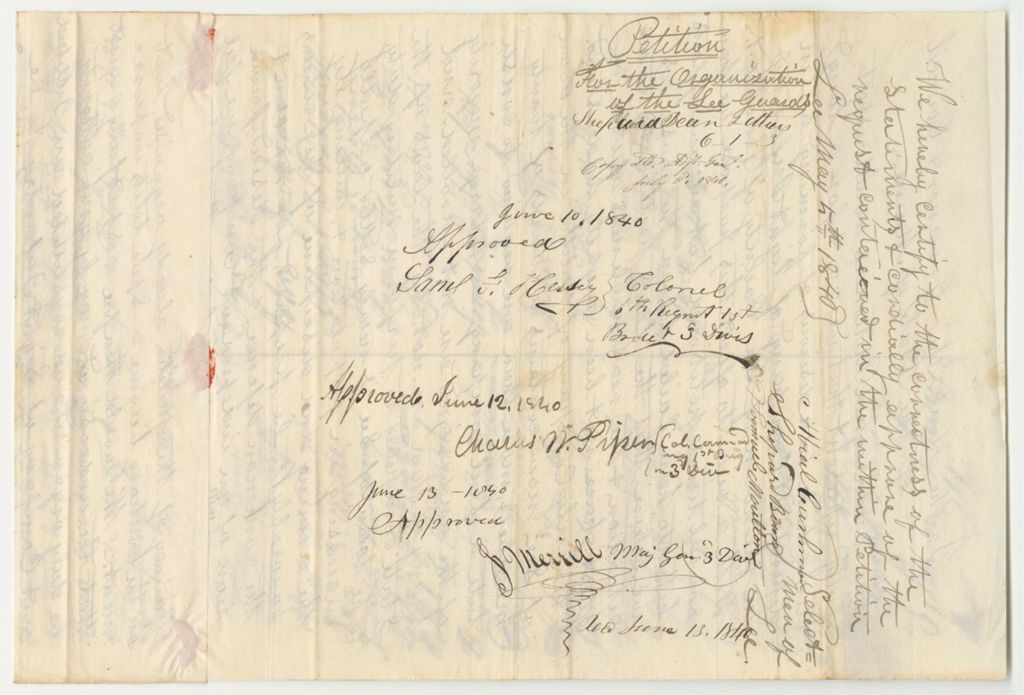 Petition
For the Organization
of the Lee Guards
Shepard Bean Letters
6 1 3
Copy Adj. Gen.
July 8. 1840.
June 10, 1840
Approved
Saml F. Hersey Colonel
6th Regmt 1st
Brod & 3 Divis
Approved, June 12, 1840
Charles W. Piper Col. Comman
ing 1st Brig
3 Div
June 13 - 1840
Approved
J Merrill Maj Gen 3 Divn
June 13. 1840
We hereby Certify to the correctness of the
Statements & cordially approve of the
request contained in the within Petition
Lee May 4th 1840
Abiel Cushman Select=
Shepard Bean Men of
Lee.